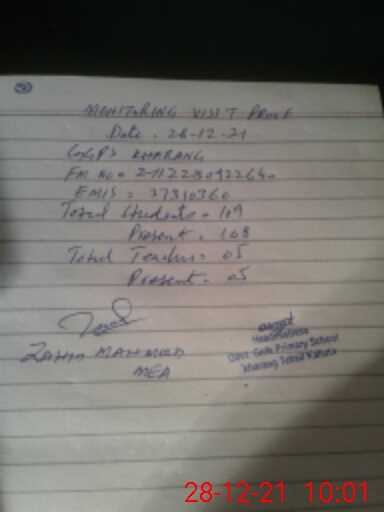 MONITORING VISIT PROOF
Date . 28-12-21
GGPS KHARANG
EMIS = 37310360
Total Students = 109
Present . 108
Total Teacher = 05
Present - 05
MAHMOOD
MEA
Headmistress
Govt. Girls Primary School
Kharang Tehsil Kahuta
28-12-21 10:01